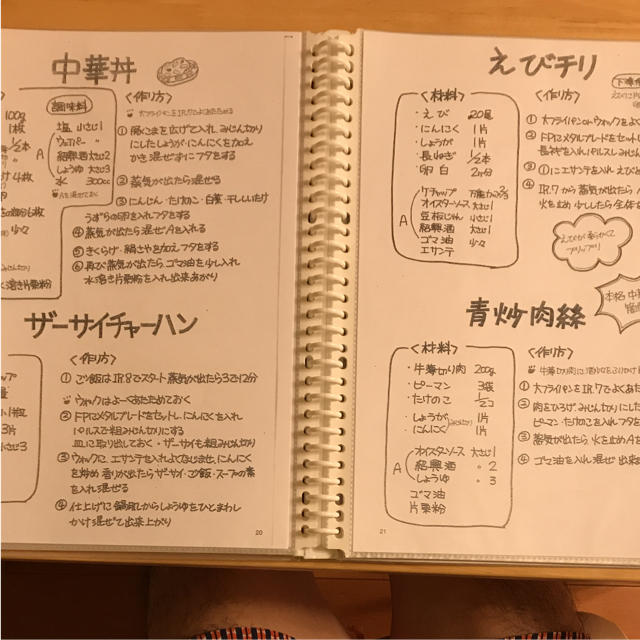 中華丼
100g
1枚
1/2本
4枚
6枚
少々
片栗粉
調味料
塩 小さじ1
ウェイパー 〃
A 紹興酒 大さじ2
しょうゆ 大さじ3
水 300cc
Aを混ぜておく
〈作り方〉
大フライパンをIR.7でよくあたためる
① 豚こまを広げて入れ みじん切り
にしたしょうが・にんにくを加え
かき混ぜずにフタをする
② 蒸気が出たら混ぜる
③ にんじん・たけのこ・白菜・干ししいたけ
うずらの卵を入れフタをする
④ 蒸気が出たら混ぜAを入れる
⑤ きくらげ・絹さやを加えフタをする
⑥ 再び蒸気が出たら、ゴマ油を少し入れ
水溶き片栗粉を入れ出来あがり
ザーサイチャーハン
〈作り方〉
① ご飯はIR.8でスタート 蒸気が出たら3で12分
ウォックはよーくあたためておく
② FPにメタルブレードをセットし、にんにくを入れ
パルスで粗みじん切りにする
皿に取り出しておく・ザーサイも粗みじん切り
③ ウォックに、エサンテを入れよくなじませ、にんにく
を炒め 香りが出たらザーサイ・ご飯・スープの素
を入れ混ぜる
④ 仕上げに鍋肌からしょうゆをひとまわし
かけ混ぜて出来上がり
20
えびチリ
〈材料〉
・えび 20尾
・にんにく 1片
・しょうが 1片
・長ねぎ 1/2本
・卵白 2ヶ分
A ケチャップ
オイスターソース 大さじ1
豆板じゃん 小さじ1
紹興酒 大さじ1
ゴマ油 少々
エサンテ
〈作り方〉
① 大フライパンorウォックをよく
② FPにメタルブレードをセットし
長ネギを入れ、パルスしみじん
③ ①にエサンテを入れえびと
④ IR.7から蒸気が出たら
火を止め
えびが柔らかくて
プリップリ
本格中華
青炒肉絲
〈材料〉
・牛薄切り肉 200g
・ピーマン 3袋
・たけのこ 1/2コ
・しょうが みじん切り 1片
・にんにく 1片
A オイスターソース 大さじ1
紹興酒 〃 2
しょうゆ 〃 3
ゴマ油
片栗粉
〈作り方〉
① 大フライパンをIR.7でよくあた
② 肉をひろげ、みじん切りにした
ピーマン・たけのこを入れフタを
③ 蒸気が出たら 火を止めA
④ ゴマ油を入れ混ぜ 出来
21